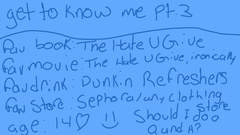 get to know me Pt.3
fav book: The Hate U Give
fav movie: The Hate U Give, ironically
fav drink: Dunkin Refreshers
fav store: Sephora/any clothing store
age: 14♡ :) Should I do a Q and A?